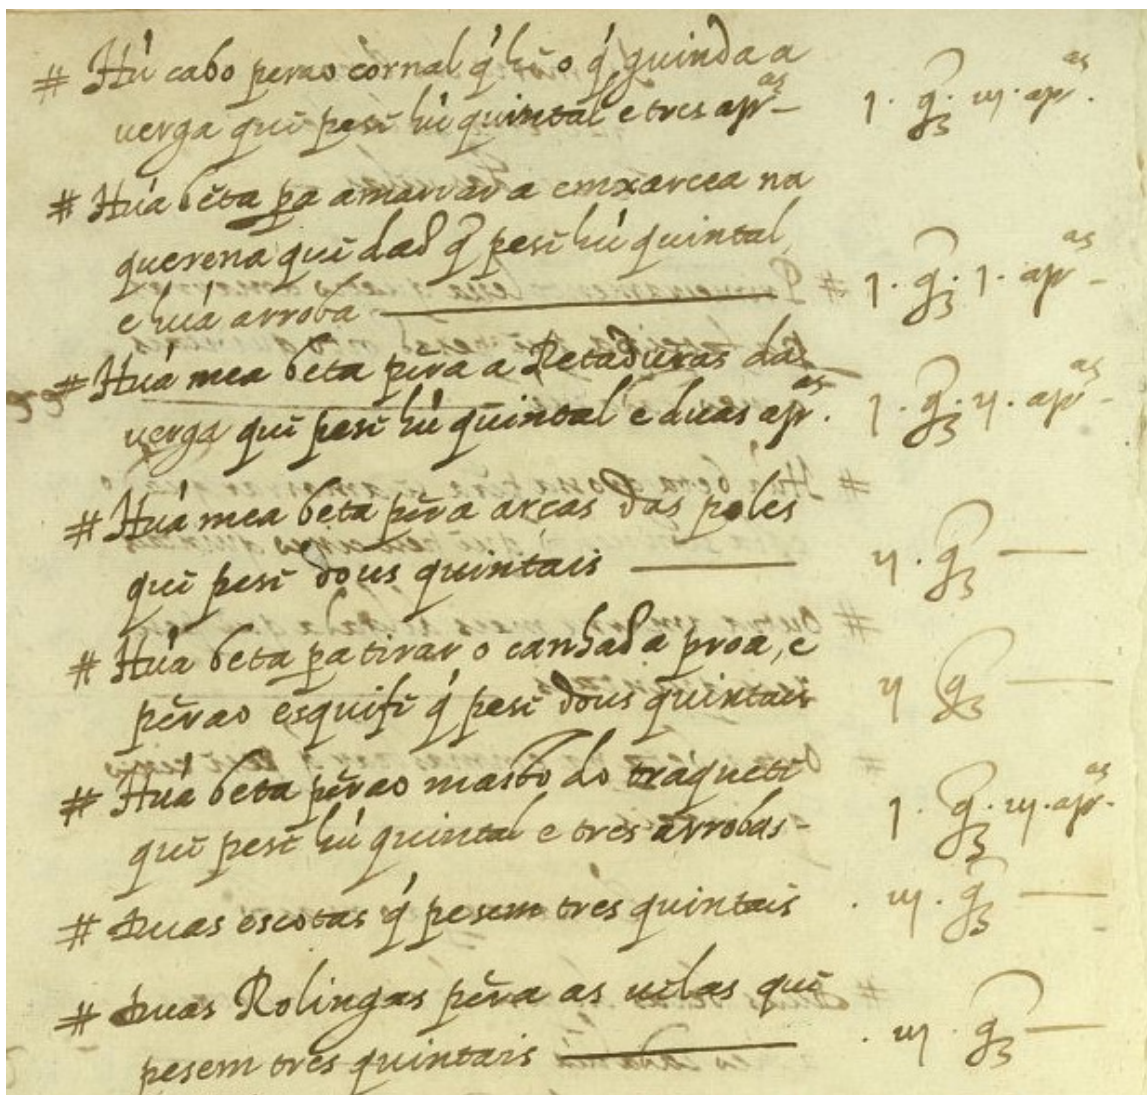 # Hũ cabo perao cornal q̃ hẽ o q̃ guinda a
verga quĩ pesĩ hũ quintal e tres apr.as – 1. q̃. iij. apr.as
# Hũa beta pa amarrar a emxarcea na
querena quĩ dad q̃ pesĩ hũ quintal
e hũa arroba — 1. q̃. 1. apr.as –
# Hũa mea beta pera a Retaduras das
verga quĩ pesĩ hũ quintal e duas apr.as 1. q̃. ij. apr.as –
# Hũa mea beta pera arcas das poles
quĩ pesĩ dous quintais — ij. q̃ —
# Hũa beta pa tirar o canhad a proa, e
perao esquifĩ q̃ pesĩ dous quintais ij q̃ —
# Hũa beta perao masto do traquetĩ
quĩ pesĩ hũ quintal e tres arrobas – 1. q̃. iij. apr.as
# Duas escotas q̃ pesem tres quintais . iij. q̃ —
# Duas Rolingas pera as uelas quĩ
pesem tres quintais — . iij. q̃ —